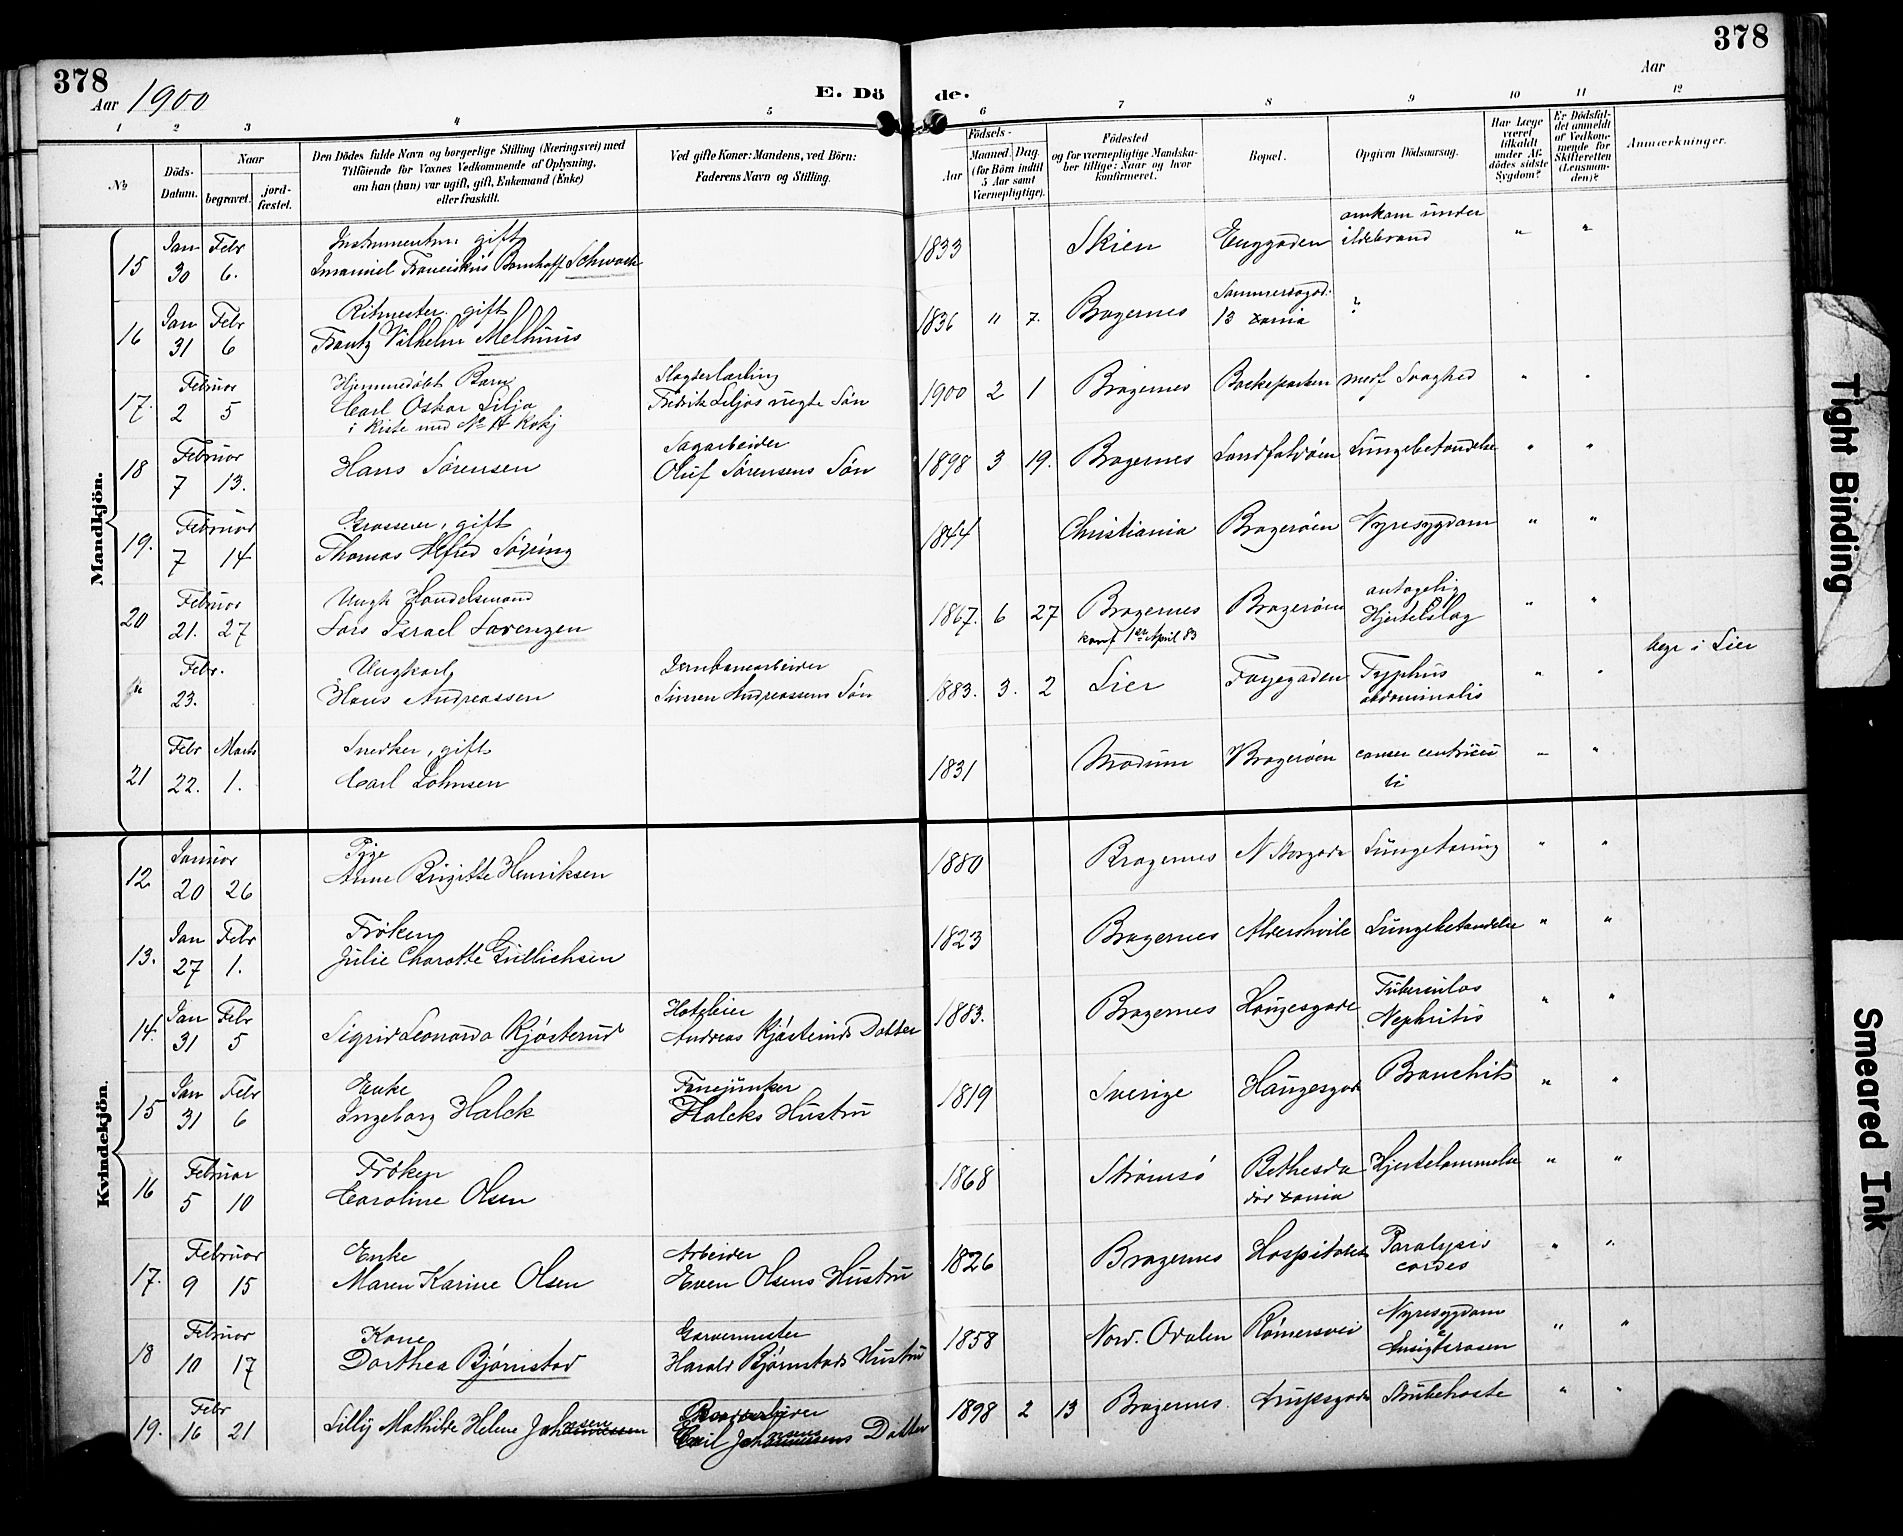 378
378
Aar 1900
E. Dö de.
Aar
1 2 3 4 5 6 7 8 9 10 11 12
№
Döds-Datum.
Naar
begravet.
jord-fæstet.
Den Dödes fulde Navn og borgerlige Stilling (Næringsvei) med
Tilföiende for Voxnes Vedkommende af Oplysning,
om han (hun) var ugift, gift, Enkemand (Enke)
eller fraskilt.
Ved gifte Koner: Mandens, ved Börn:
Faderens Navn og Stilling.
Födsels-
Aar
Maaned. Dag.
(for Börn indtil
5 Aar samt
Værnepligtige).
Födested
og for værnepligtige Mandska-
ber tillige: Naar og hvor
konfirmeret.
Bopæl.
Opgiven Dödsaarsag.
Har Læge
været
tilkaldt
under Af-
dödes sidste
Sygdom?
Er Dödsfal-
det anmeldt
af Vedkom-
mende for
Skifteretten
(Lensman-
den)?
Anmærkninger.
Mandkjön.
15 Jan 30 Febr 6. Instrumentm. gift
Imanuel Franciskus Bomhoff Schwack 1833 Skien Enggaden omkom under
ildebrand " "
16 Jan 31 Febr 6 Ritmester. gift
Frantz Vilhelm Melhuus 1836 " 7. Bragernes
13 xania ?
17. Februar 2 5 Hjemmedøbt Barn
Carl Oskar Lilja
i Kiste med No 14 Kvkj
Slagterlærling
Fredrik Liljas uegte Søn 1900 2 1 Bragernes Bakeparken medf Svaghed " "
18 Februar 7 13. Hans Sørensen
Sagarbeider
Oluf Sørensens Søn 1898 3 19. Bragernes Landfaløien Lungebetændelse " "
19. Februar 7 14 Grosserer, gift
Thomas Alfred Søring 1844 Christiania Bragerøen Nyresygdom " "
20 Februar 21. 27 Ungk Handelsmand
Lars Israel Lorenzen 1867. 6 27 Bragernes
konf 1ste April 83
Bragerøen antagelig
Hjerteslag " "
Febr. 23. Ungkarl
Hans Andreassen
Jernbanearbeider
Simen Andreassens Søn 1883. 3. 2 Lier Fayegaden Typhus
abdominalis " " begr i Lier
21 Febr 22. Marts 1. Snedker, gift
Carl Johnsen 1831 Modum Bragerøen cancer ventriculi " "
Kvindekjön.
12 Januar 20 26 Pige
Anne Birgitte Henriksen 1880 Bragernes N Storgade Lungetæring " "
13. Jan 27 Febr 1. Frøken
Julie Charotte Gullichsen 1823 Bragernes Aldershvile Lungebetændelse " "
14. Jan 31 Febr 5 Sigrid Leonarda Kjøsterud
Hoteleier
Andreas Kjøsteruds Datter 1883. Bragernes Haugesgade Tuberculos
Nephritis " "
15 Jan 31 Febr 6 Enke
Ingeborg Halck
Fanejunker
Halcks Hustru 1819 Sverige Haugesgade Bronchit " "
16 Februar 5 10 Frøken
Caroline Olsen 1868 Strømsø Bethesda
xania Hjertelammelse " "
17. Februar 9 15 Enke
Maren Karine Olsen
Arbeider
Even Olsens Hustru 1826 Bragernes Hospitalet Paralysis
cordis " "
18 Februar 10 17 Kone
Dorthea Bjørnstad
Garvermester
Harald Bjørnstads Hustru 1858 Nord. Odalen Rømersvei Nyresygdom
&
Ansigtsrosen " "
19. Febr 16 21 Lilly Mathilde Helene Johansen
Emil Johansens Datter 1898 2 13 Bragernes Strubehoste " "
Tight Binding
Smeared Ink